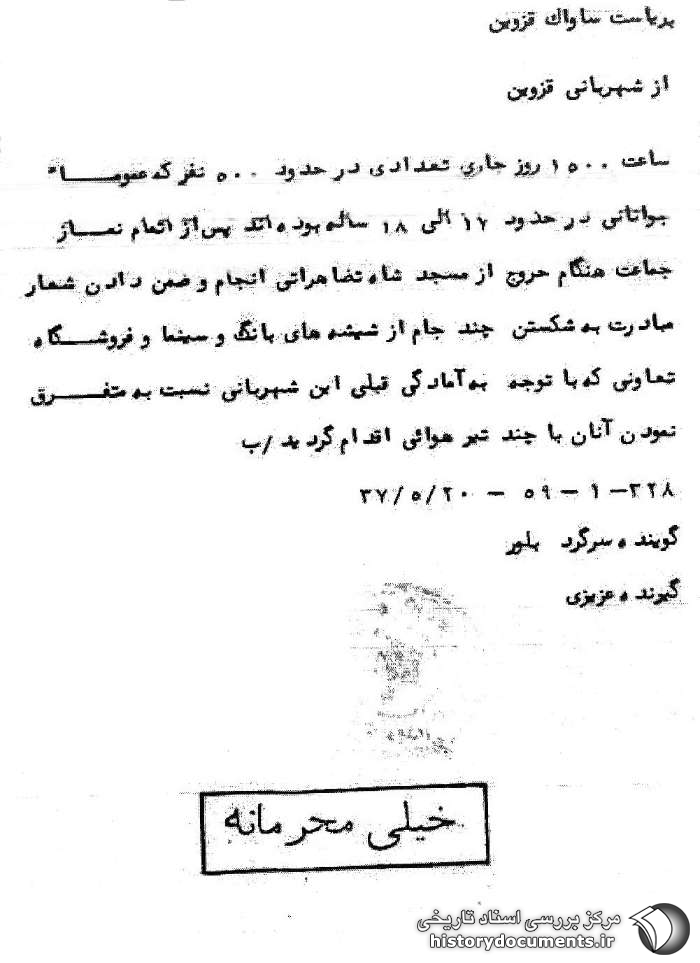 بریاست ساواك قزوین
از شهربانی قزوین
ساعت ۱۵۰۰ روز جاری تعدادی در حدود ۵۰۰ نفر که عمومــــا"
جوانانی در حدود ۱۲ الی ۱۸ ساله بوده اند پس از اتمام نمــاز
جماعت هنگام حروج از مسجد شاه تضاهراتی انجام و ضمن دادن شعار
مبادرت به شکستن چند جام از شیشه های بانگ و سینما و فروشــگاه
تعاونی که با توجه به آمادگی قبلی این شهربانی نسبت به متفــــرق
نمودن آنان با چند تیر هوائی اقدام گردید /ب
۳۲۸-۱-۵۹ - ۳۷/۵/۲۰
گوینده سرگرد بلور
گیرنده عزیزی
خیلی محرمانه
مرکز بررسی اسناد تاریخی
historydocuments.ir